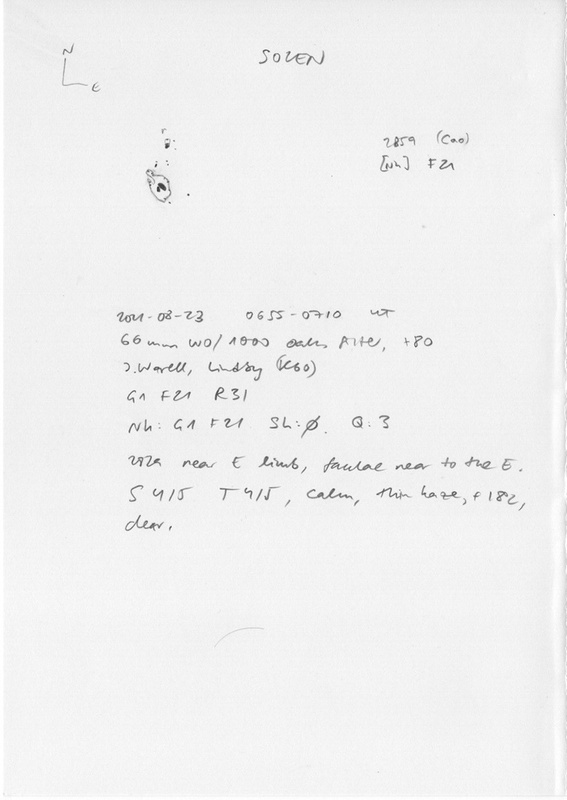 N
E
SOLEN
2859 (Cao)
[Nh] F21
2021-08-23 0655-0710 UT
66 mm WO/1000 Filter, +80
J. Warell, Lindby (K60)
G1 F21 R31
Nh: G1 F21 SH: ∅. Q: 3
near E limb, faculae near to the E.
S 4/5 T 4/5, calm, thin haze, +18°,
clear.